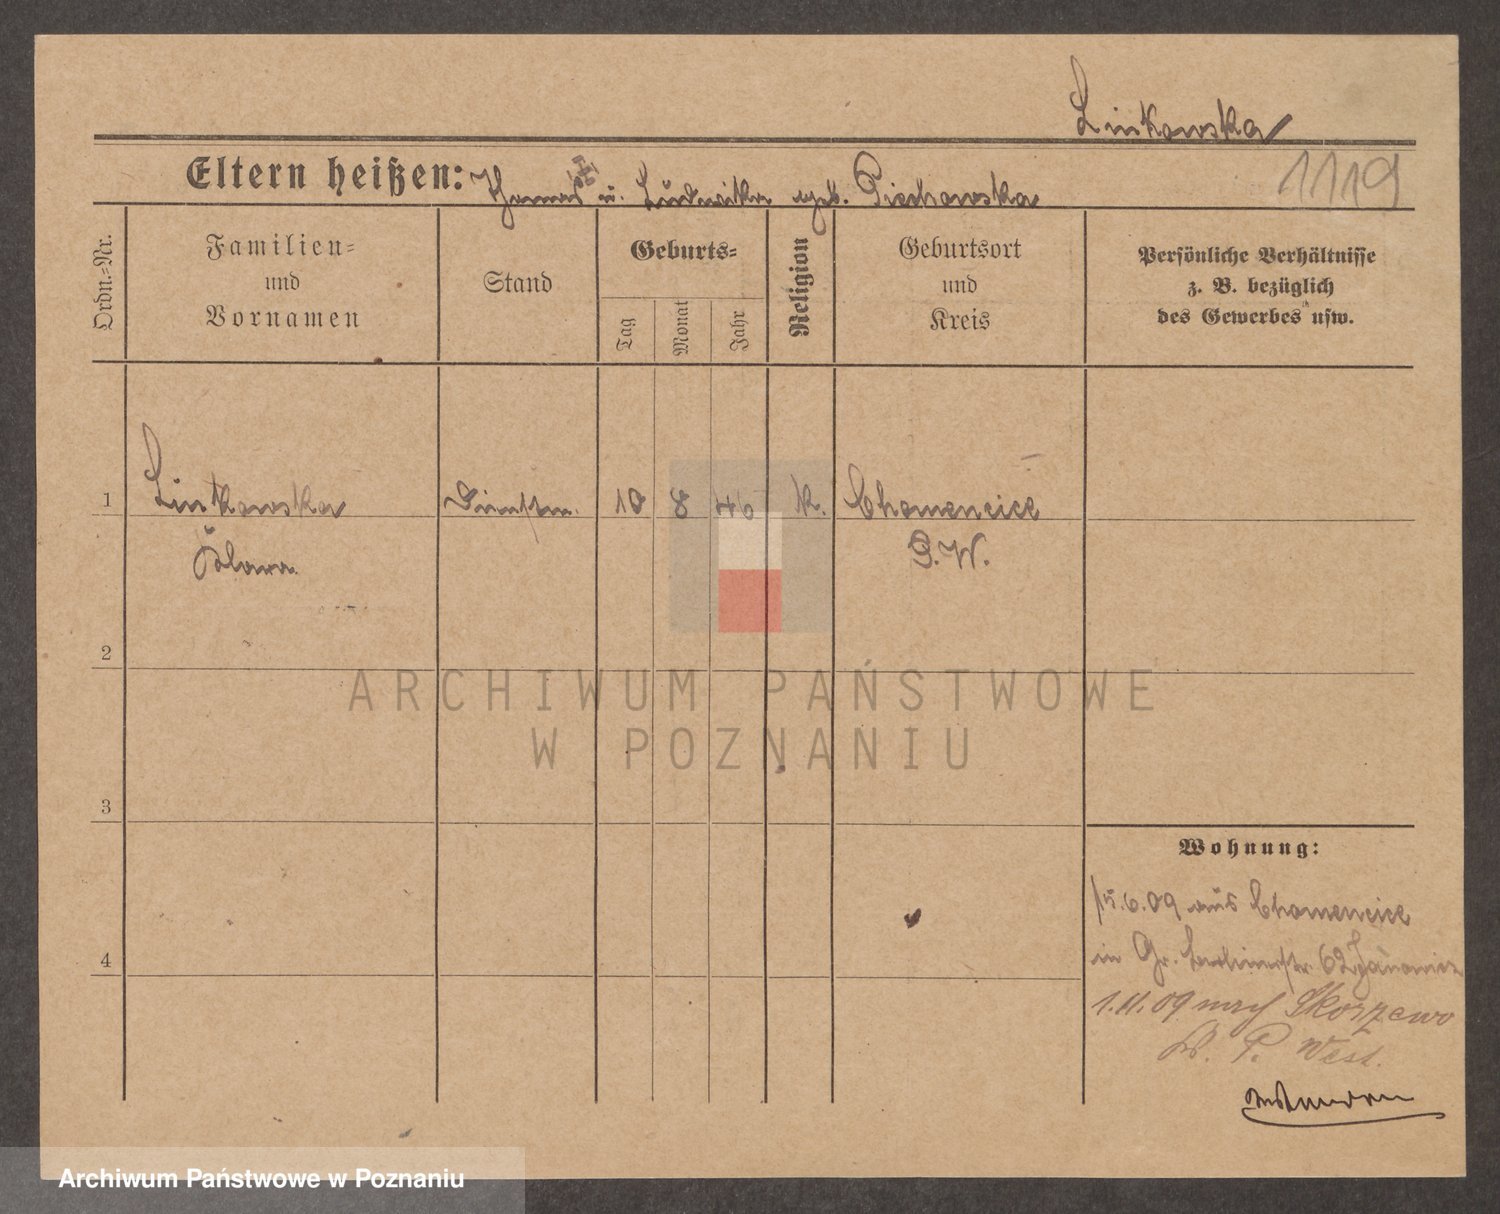 Linkowska
Eltern heißen: Thomas u. Ludwika geb. Piechowska
1119
Ordn.-Nr.
Familien-
und
Vornamen
Stand
Geburts-
Tag
Monat
Jahr
Religion
Geburtsort
und
Kreis
Persönliche Verhältnisse
z. B. bezüglich
des Gewerbes usw.
1
Linkowska
Klara
Dienstm.
10
8
k.
Chomencice
P.W.
2
ARCHIWUM PAŃSTWOWE
W POZNANIU
3
Wohnung:
15.6.09 aus Chomencice
in Gr. Berlinerstr. 62
4
1.11.09 nach Skorzewo
Kr. P. West.
Archiwum Państwowe w Poznaniu